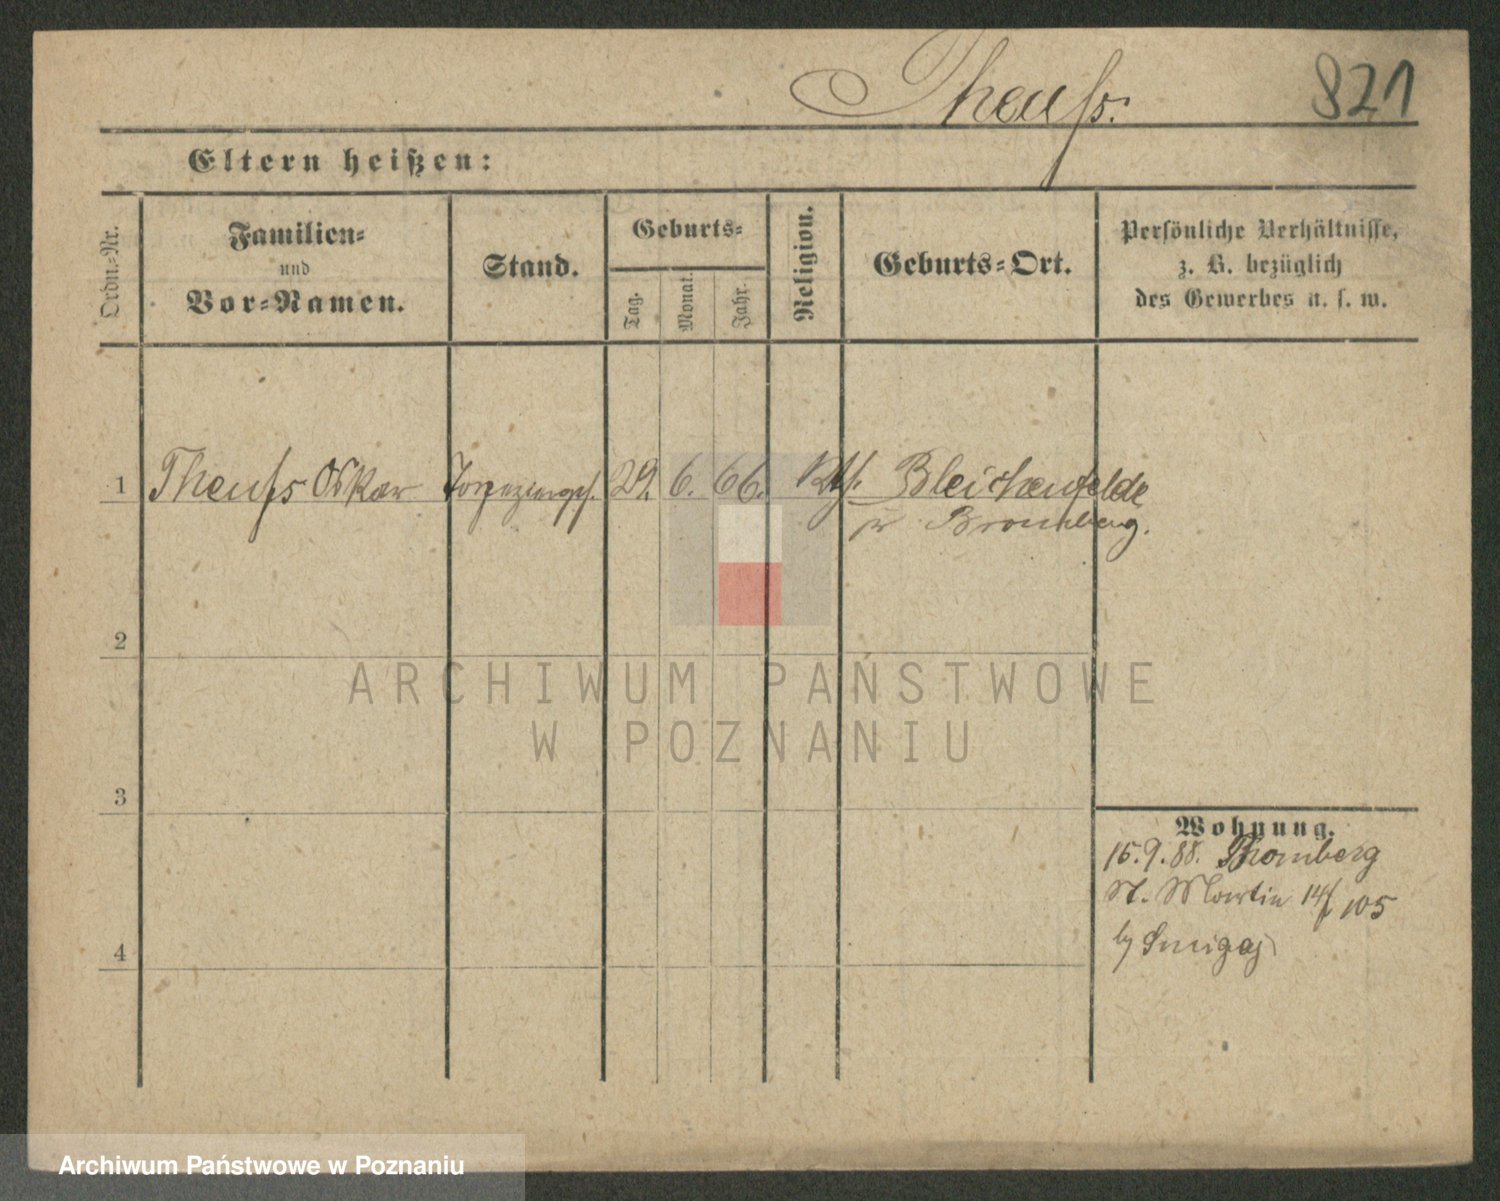 Theuſs.
821
Eltern heißen:
Ordn.-Nr.
Familien-
und
Vor-Namen.
Stand.
Geburts-
Tag.
Monat.
Jahr.
Religion.
Geburts-Ort.
Persönliche Verhältnisse,
z. B. bezüglich
des Gewerbes u. s. w.
1 Theuſs Oskar 29. 6. 66. Kth. Bleichenfelde
Bromberg.
2
ARCHIWUM PAŃSTWOWE
W POZNANIU
3
Wohnung.
15.9.88. Bromberg
St. Martin 14/105
4
Archiwum Państwowe w Poznaniu